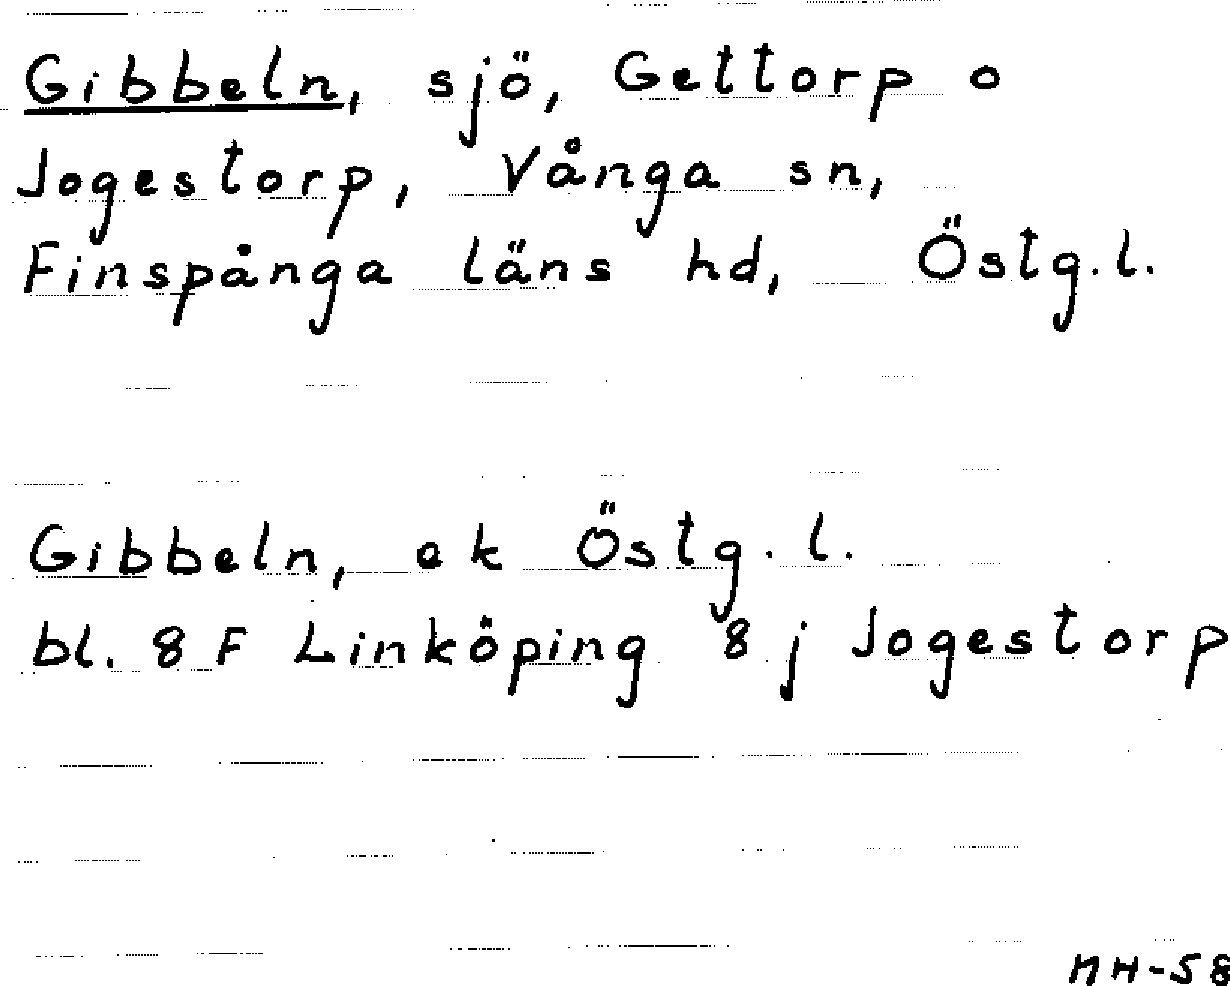 Gibbeln, sjö, Gettorp o
Jogestorp, Vånga sn,
Finspånga läns hd, Östg.l.
Gibbeln, ek Östg.l.
bl. 8 F Linköping 8 j Jogestorp
NH-58